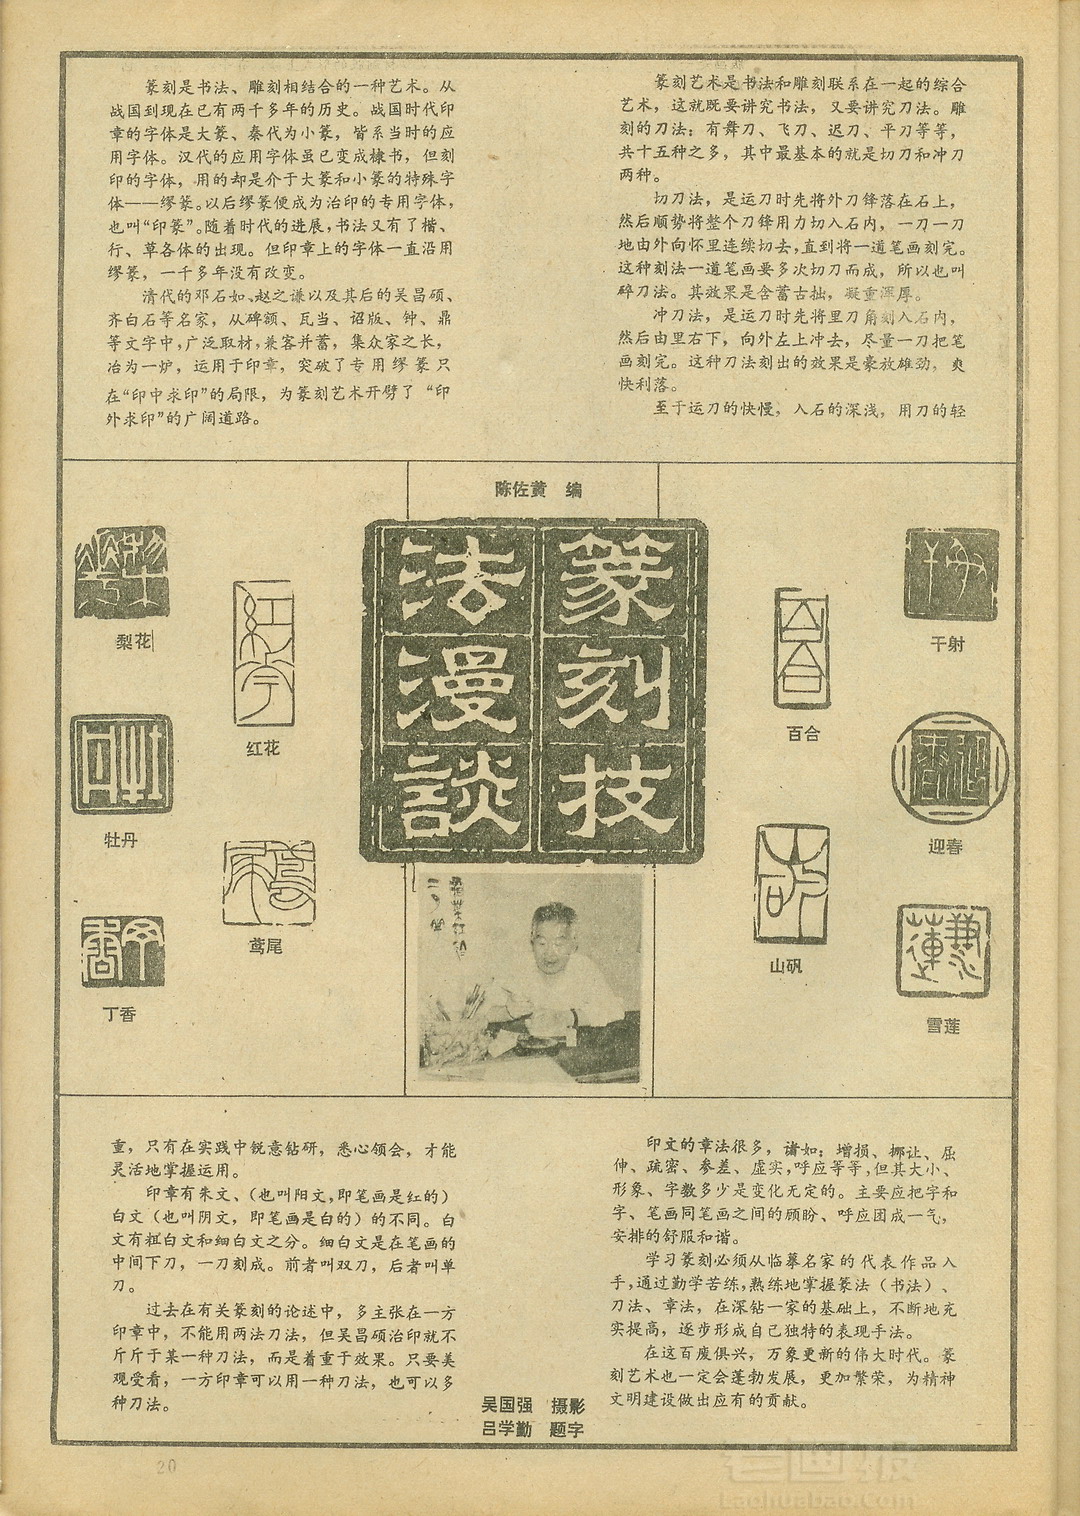 篆刻是书法、雕刻相结合的一种艺术。从
战国到现在已有两千多年的历史。战国时代印
章的字体是大篆、秦代为小篆，皆系当时的应
用字体。汉代的应用字体虽已变成隶书，但刻
印的字体，用的却是介于大篆和小篆的特殊字
体——缪篆。以后缪篆便成为治印的专用字体，
也叫“印篆”。随着时代的进展，书法又有了楷、
行、草各体的出现。但印章上的字体一直沿用
缪篆，一千多年没有改变。
清代的邓石如、赵之谦以及其后的吴昌硕、
齐白石等名家，从碑额、瓦当、诏版、钟、鼎
等文字中，广泛取材，兼客并蓄，集众家之长，
冶为一炉，运用于印章，突破了专用缪篆只
在“印中求印”的局限，为篆刻艺术开劈了“印
外求印”的广阔道路。
篆刻艺术是书法和雕刻联系在一起的综合
艺术，这就既要讲究书法，又要讲究刀法。雕
刻的刀法：有舞刀、飞刀、迟刀、平刀等等，
共十五种之多，其中最基本的就是切刀和冲刀
两种。
切刀法，是运刀时先将外刀锋落在石上，
然后顺势将整个刀锋用力切入石内，一刀一刀
地由外向怀里连续切去，直到将一道笔画刻完。
这种刻法一道笔画要多次切刀而成，所以也叫
碎刀法。其效果是含蓄古拙，凝重浑厚。
冲刀法，是运刀时先将里刀角刻入石内，
然后由里右下，向外左上冲去，尽量一刀把笔
画刻完。这种刀法刻出的效果是豪放雄劲，爽
快利落。
至于运刀的快慢，入石的深浅，用刀的轻
陈佐黄 编
篆刻技
法漫談
梨花
红花
牡丹
鸢尾
丁香
干射
百合
迎春
山矾
雪莲
重，只有在实践中锐意钻研，悉心领会，才能
灵活地掌握运用。
印章有朱文、（也叫阳文，即笔画是红的）
白文（也叫阴文，即笔画是白的）的不同。白
文有粗白文和细白文之分。细白文是在笔画的
中间下刀，一刀刻成。前者叫双刀，后者叫单
刀。
过去在有关篆刻的论述中，多主张在一方
印章中，不能用两法刀法，但吴昌硕治印就不
斤斤于某一种刀法，而是着重于效果。只要美
观受看，一方印章可以用一种刀法，也可以多
种刀法。
印文的章法很多，诸如：增损、挪让、屈
伸、疏密、参差、虚实，呼应等等，但其大小、
形象、字数多少是变化无定的。主要应把字和
字、笔画同笔画之间的顾盼、呼应团成一气，
安排的舒服和谐。
学习篆刻必须从临摹名家的代表作品入
手，通过勤学苦练，熟练地掌握篆法（书法）、
刀法、章法，在深钻一家的基础上，不断地充
实提高，逐步形成自己独特的表现手法。
在这百废俱兴，万象更新的伟大时代。篆
刻艺术也一定会蓬勃发展，更加繁荣，为精神
文明建设做出应有的贡献。
吴国强 摄影
吕学勤 题字
20
老画报
Laohuabao.Com